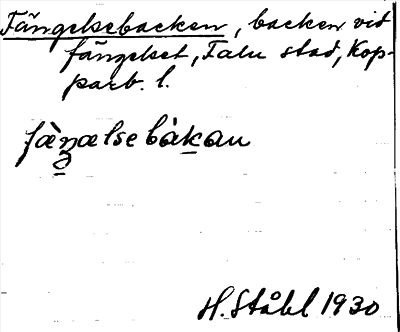 Fängelsebacken, backen vid
fängelset, Falu stad, Kop-
parb. l.
fàŋælsebàkan
H. Ståhl 1930